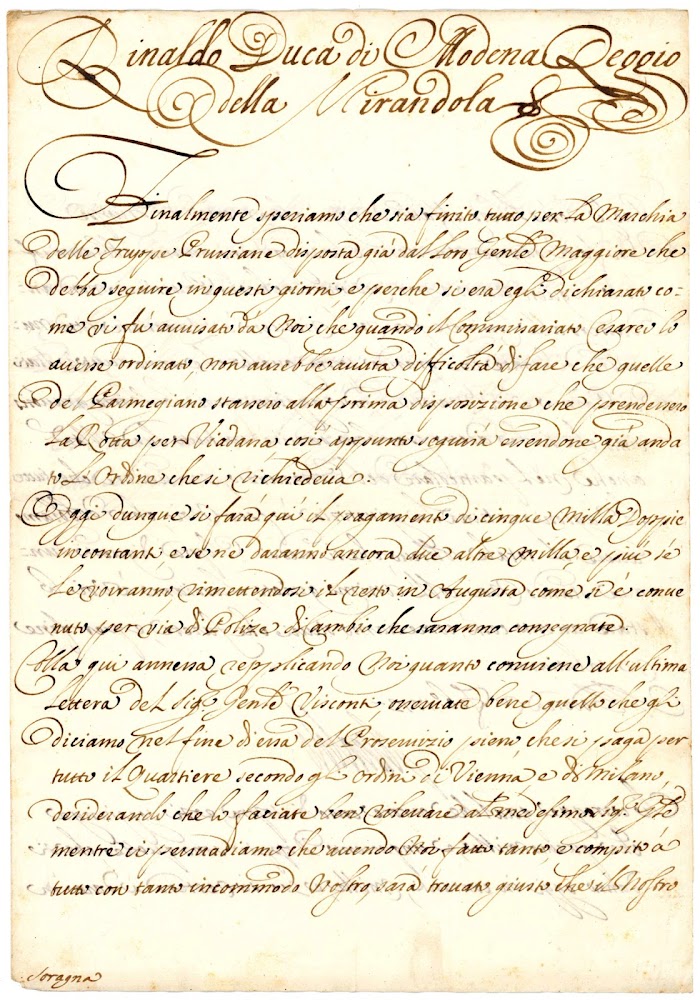 Rinaldo Duca di Modena Reggio
della Mirandola &
Finalmente speriamo che sia finito tutto per La Marchia
delle Truppe Prussiane disposta già dal loro Gen.le Maggiore che
debba seguire in questi giorni e perche si era egli dichiarato co=
me vi fù avvisato da Noi che quando il Commissariato Cesareo lo
avesse ordinato, non aurebbe avuta difficoltà di fare che quelle
del Parmegiano stassero alla prima disposizione che prendessero
La Rotta per Viadana così appunto seguirà essendone già anda
to L'Ordine che si richiedeva.
Oggi dunque si farà quì il pagamento di cinque milla Doppie
in contanti e se ne daranno ancora due altre milla, e più se
Le vorranno rimettendosi il resto in Augusta come si è conve
nuto per via di Polize di Cambio che saranno consegnate.
Colla qui annessa replicando Noi quanto conviene all'ultima
Lettera del Sig. Gen.le Visconti osservate bene quello che gli
diciamo nel fine di essa del Proservizio pieno, che si paga per
tutto il Quartiere secondo gl'ordini di Vienna, e di Milano,
desiderando che lo facciate ben rilevare al medesimo Sig. Gle
mentre ci persuadiamo che avendo Noi fatto tanto e compito à
tutto con tanto incommodo Nostro, sarà trovato giusto che il Nostro
Soragna